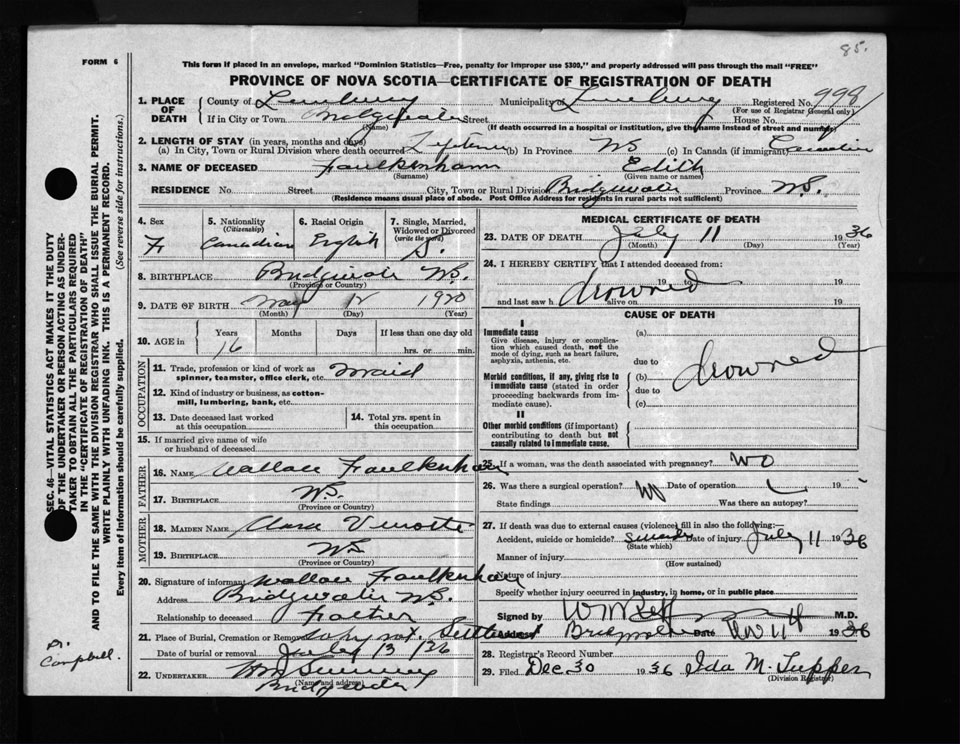 85.
FORM 6
This form if placed in an envelope, marked "Dominion Statistics—Free, penalty for improper use $300," and properly addressed will pass through the mail "FREE"
PROVINCE OF NOVA SCOTIA—CERTIFICATE OF REGISTRATION OF DEATH
1. PLACE OF DEATH
County of Lunenburg Municipality of Lunenburg Registered No. 998
(For use of Registrar General only)
If in City or Town Bridgewater Street House No.
(Name) (If death occurred in a hospital or institution, give the name instead of street and number)
2. LENGTH OF STAY (in years, months and days)
(a) In City, Town or Rural Division where death occurred Lifetime (b) In Province NS (c) In Canada (if immigrant) Canadian
3. NAME OF DECEASED Faulkenham Edith
(Surname) (Given name or names)
RESIDENCE No. Street City, Town or Rural Division Bridgewater Province N.S.
(Residence means usual place of abode. Post Office Address for residents in rural parts not sufficient)
4. Sex F
5. Nationality (Citizenship) Canadian
6. Racial Origin English
7. Single, Married, Widowed or Divorced (write the word) S.
8. BIRTHPLACE Bridgewater N.S.
(Province or Country)
9. DATE OF BIRTH May 12 1920
(Month) (Day) (Year)
10. AGE in Years Months Days If less than one day old
16 hrs. or min.
OCCUPATION
11. Trade, profession or kind of work as spinner, teamster, office clerk, etc. Maid
12. Kind of industry or business, as cotton-mill, lumbering, bank, etc.
13. Date deceased last worked at this occupation
14. Total yrs. spent in this occupation
15. If married give name of wife or husband of deceased
FATHER
16. NAME Wallace Faulkenham
17. BIRTHPLACE N.S.
(Province or Country)
MOTHER
18. MAIDEN NAME Clara
19. BIRTHPLACE N.S.
(Province or Country)
20. Signature of informant Wallace Faulkenham
Address Bridgewater N.S.
Relationship to deceased Father
21. Place of Burial, Cremation or Removal
Date of burial or removal July 13/36
22. UNDERTAKER
(Name and address) Bridgewater
MEDICAL CERTIFICATE OF DEATH
23. DATE OF DEATH July 11 1936
(Month) (Day) (Year)
24. I HEREBY CERTIFY that I attended deceased from:
19 to 19
and last saw h alive on 19
drowned
CAUSE OF DEATH
I
Immediate cause
Give disease, injury or complication which caused death, not the mode of dying, such as heart failure, asphyxia, asthenia, etc.
(a)
due to
Morbid conditions, if any, giving rise to immediate cause (stated in order proceeding backwards from immediate cause).
(b) drowned
due to
(c)
II
Other morbid conditions (if important) contributing to death but not causally related to immediate cause.
25. If a woman, was the death associated with pregnancy? No
26. Was there a surgical operation? No Date of operation 19
State findings Was there an autopsy?
27. If death was due to external causes (violence) fill in also the following:—
Accident, suicide or homicide? Date of injury July 11 1936
(State which)
Manner of injury
(How sustained)
Nature of injury
Specify whether injury occurred in industry, in home, or in public place
Signed by M.D.
Address Date 1936
28. Registrar's Record Number
29. Filed Dec. 30 1936 Ida M. Tupper
(Division Registrar)
SEC. 46—VITAL STATISTICS ACT MAKES IT THE DUTY
OF THE UNDERTAKER OR PERSON ACTING AS UNDER-
TAKER TO OBTAIN ALL THE PARTICULARS REQUIRED
IN THE "CERTIFICATE OF REGISTRATION OF DEATH"
AND TO FILE THE SAME WITH THE DIVISION REGISTRAR WHO SHALL ISSUE THE BURIAL PERMIT.
WRITE PLAINLY WITH UNFADING INK. THIS IS A PERMANENT RECORD.
Every item of information should be carefully supplied. (See reverse side for instructions.)
Campbell.